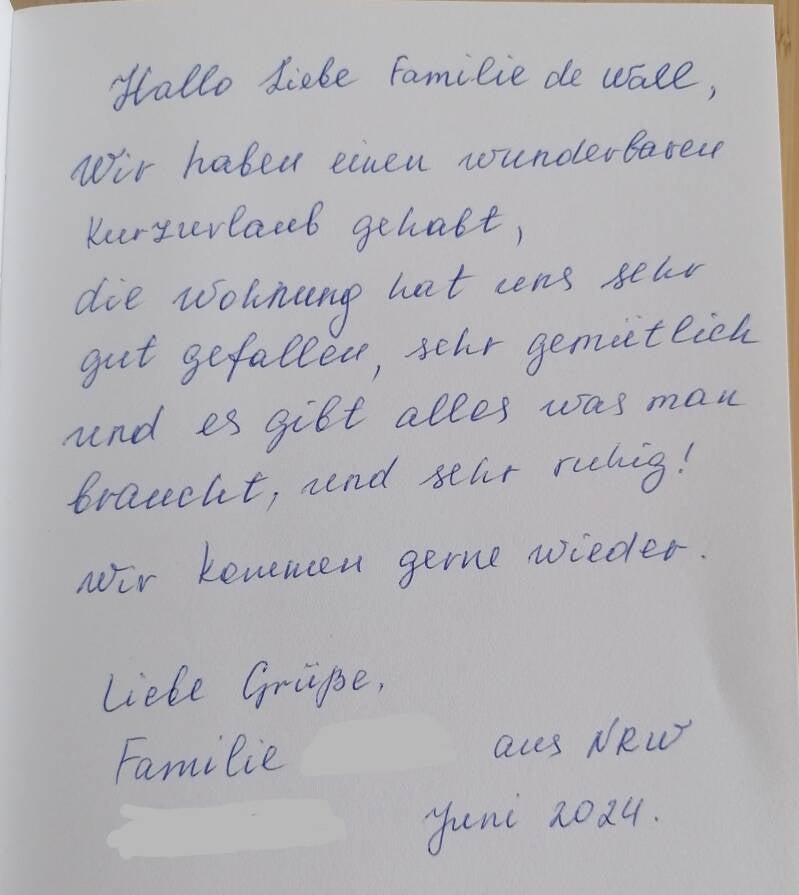 Hallo Liebe Familie de Wall,
Wir haben einen wunderbaren
Kurzurlaub gehabt,
die Wohnung hat uns sehr
gut gefallen, sehr gemütlich
und es gibt alles was man
braucht, und sehr ruhig!
Wir kommen gerne wieder.
Liebe Grüße,
Familie aus NRW
Juni 2024.